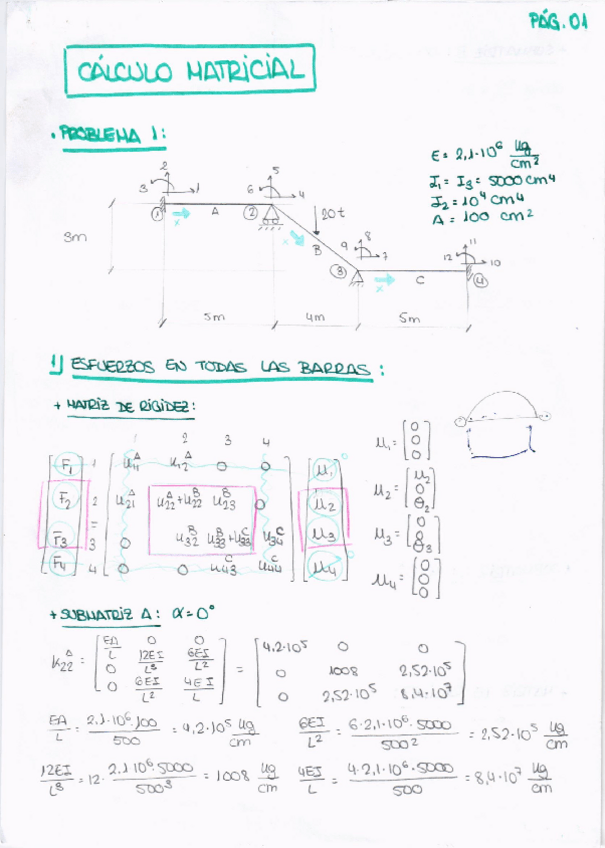 PÁG. 01
CÁLCULO MATRICIAL
• PROBLEMA 1:
E = 2,1·10⁶ kg/cm²
I₁ = I₃ = 5000 cm⁴
I₂ = 10⁴ cm⁴
A = 100 cm²
2 3 1 5 6 4
1 A 2 20t
x x B 9 8 7 11 12 10
3m
3 C 4
x
5m 4m 5m
1) ESFUERZOS EN TODAS LAS BARRAS:
+ MATRIZ DE RIGIDEZ:
1 2 3 4
F₁ 1 K₁₁ᴬ K₁₂ᴬ 0 0 u₁
F₂ 2 K₂₁ᴬ K₂₂ᴬ+K₂₂ᴮ K₂₃ᴮ 0 u₂
=
F₃ 3 0 K₃₂ᴮ K₃₃ᴮ+K₃₃ꟲ K₃₄ꟲ u₃
F₄ 4 0 0 K₄₃ꟲ K₄₄ꟲ u₄
u₁ = [0 0 0]
u₂ = [u₂ 0 θ₂]
u₃ = [0 0 θ₃]
u₄ = [0 0 0]
+ SUBMATRIZ A: α = 0°
K₂₂ᴬ = [EA/L 0 0; 0 12EI/L³ 6EI/L²; 0 6EI/L² 4EI/L] = [4,2·10⁵ 0 0; 0 1008 2,52·10⁵; 0 2,52·10⁵ 8,4·10⁷]
EA/L = 2,1·10⁶·100/500 = 4,2·10⁵ kg/cm 6EI/L² = 6·2,1·10⁶·5000/500² = 2,52·10⁵ kg/cm
12EI/L³ = 12·2,1·10⁶·5000/500³ = 1008 kg/cm 4EI/L = 4·2,1·10⁶·5000/500 = 8,4·10⁷ kg/cm